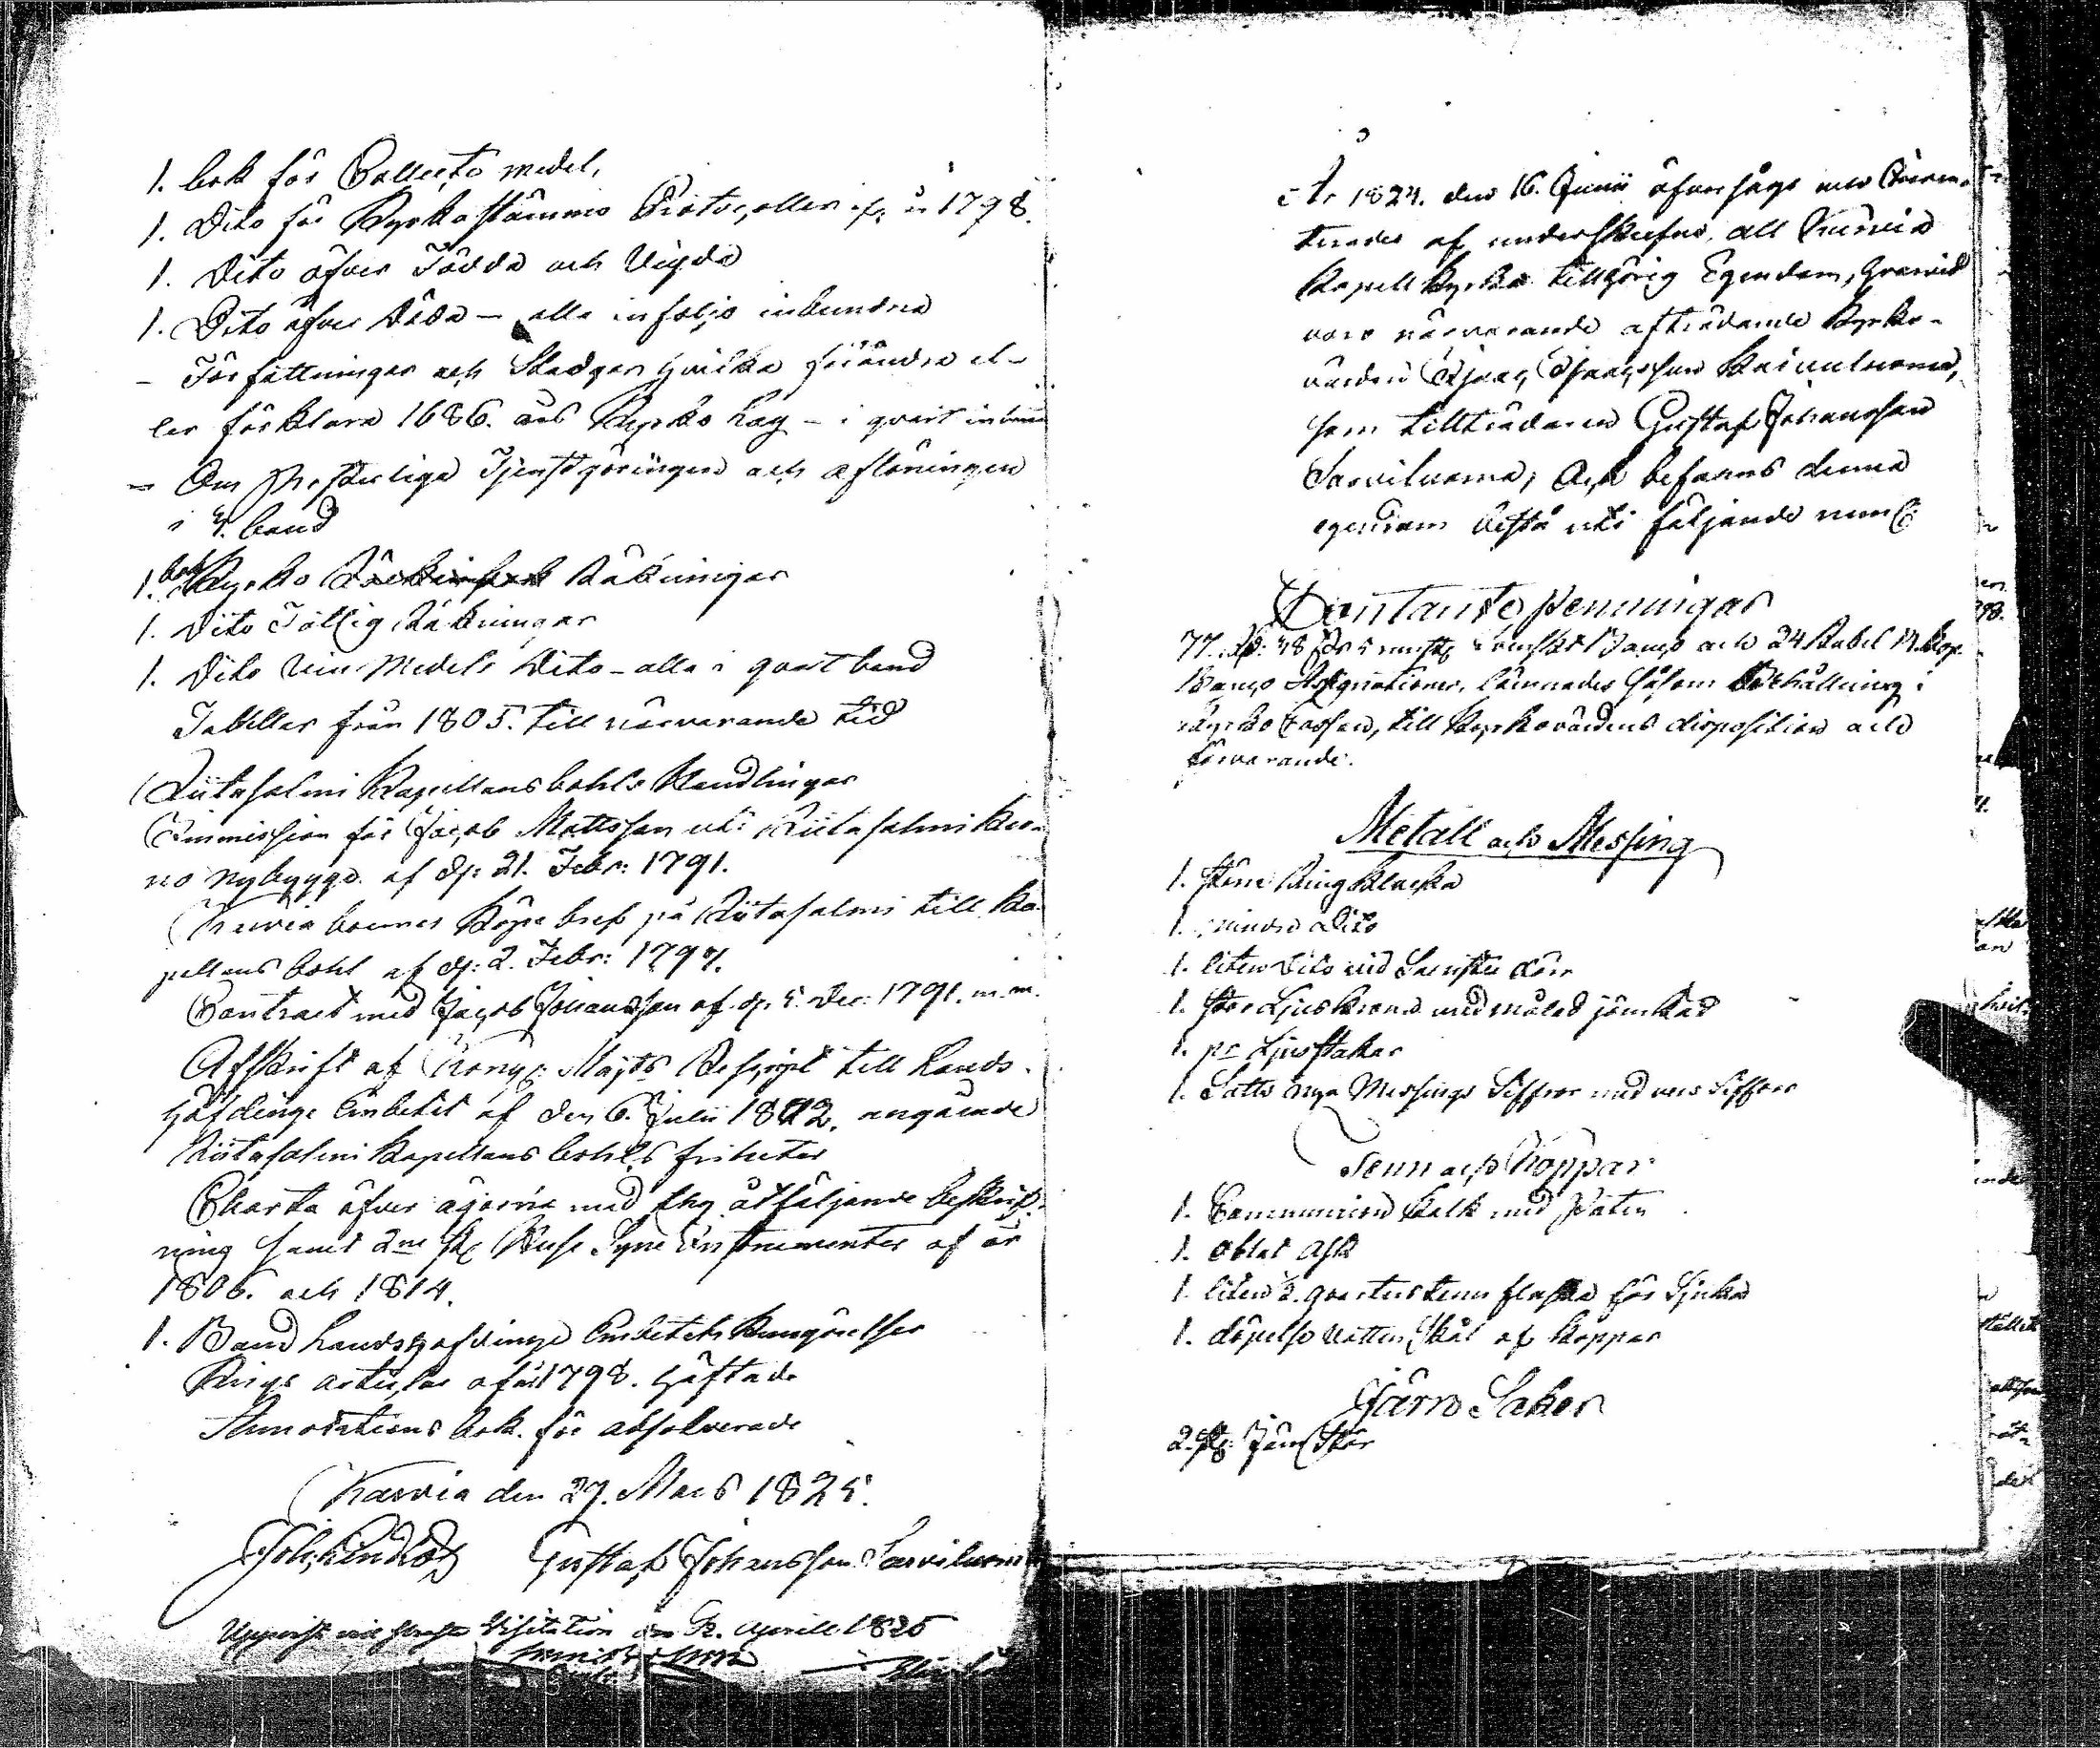 1. bok för Collect medel,
1. Dito för Kyrkostämmo Protocoller ifr. år 1798.
1. Dito öfver Födda och Vigda
1. Dito öfver Döda — alla in folio inbundna
— Författningar och Stadgar hvilka förändra el-
ler förklara 1686. års Kyrko Lag — i qvart
— Om Presterliga Tjenstgöringen och aflöningen
i 4. band
1. bok Kyrko Räkningar
1. Dito Fattig Räkningar
1. Dito Vin Medels Dito — alla i qvart band
Tabeller från 1805. till närvarande tid
Riitasalmi Kapellansbohls Handlingar
Immission för Jacob Mattsson uti Riitasalmi Kro-
no nybygge af d: 21. Febr: 1791.
Karvia boernes Köpe bref på Riitasalmi till Ka-
pellans bohl af d: 2. Febr: 1797.
Contract med Jacob Johansson af d. 5. Dec: 1791. m.m.
Afskrift af Kongl: Maj:ts Rescript till Lands-
höfdinge Embetet af den 6. Julii 1802. angående
Riitasalmi Kapellans bohls friheter
Charta öfver ägorna med thy åtföljande beskrif-
ning samt 2ne st. Huse Syne Instrumenter af år
1806. och 1814.
1. Band Landshöfdinge Embetets Kungörelser
Krigs articlar af år 1798. häftade
Annotations bok för absolverade
Karvia den 27. Mars 1825.
Joh. Gustaf Johansson Sarviluoma
Uppvist vid Visitation den 12. Aprill 1825
År 1824. den 16. Junii öfversågs och Inven-
terades af underskrefne, all Karvia
Kapell Kyrka tillhörig Egendom, hvarvid
voro närvarande afträdande Kyrko-
värden Isaac Isaacsson
som tillträdaren Gustaf Johansson
Sarviluoma; Och befanns denna
egendom bestå uti följande neml:
Contante Penningar
77. Rd: 48 Banco och 24 Rubel Kop.
Banco Assignationer, lämnades såsom behållning i
Kyrko Cassan, till Kyrkovärdens disposition och
förvarande.
Metall och Messing
1. större Ring Klocka
1. mindre Dito
1. liten Dito vid Sacristie dörr
1. stor Ljus Krona med målad järnkäd
1. pr Ljusstakar
1. Satts nya Messings Siffror med vers Siffror
Tenn och Koppar
1. Communion Kalk med Paten
1. Oblat Ask
1. liten 2. qvarters tenn flaska för Sjuka
1. döpelse vatten skål af Koppar
Järn Saker
2. st: Järn Stör